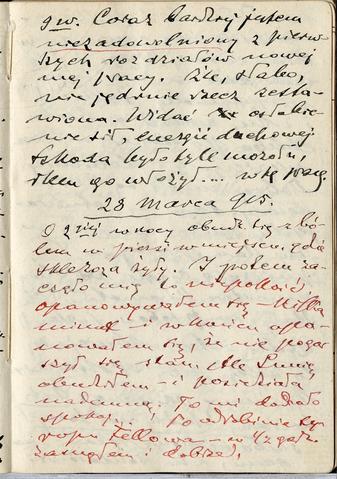 gw. Coraz bardziej jestem
niezadowolniony z pierw-
szych rozdziałów nowej
mej pracy. Źle, słabo,
nie jędrnie rzecz zesta-
wiona. Widać osłabie-
nie sił, energii duchowej
Szkoda było tyle mozołu,
ilem go włożył... w tę pracę.
28 marca
O 2 iej w nocy obudz się z bó-
lem w piersi w miejscu, gdzie
skleroza żyły. I potem za-
częło mię to niepokoić,
opanowywałem się – kilka
minut – i w końcu opa-
nowałem się, że nie pogor
szył się stan. Ale
obudziłem – i posiedziała
nademną. To mi dodało
spokoj... Po odrobinie sy-
ropu Fellowa – w 1/2 godz.
zasnąłem i dobrze.